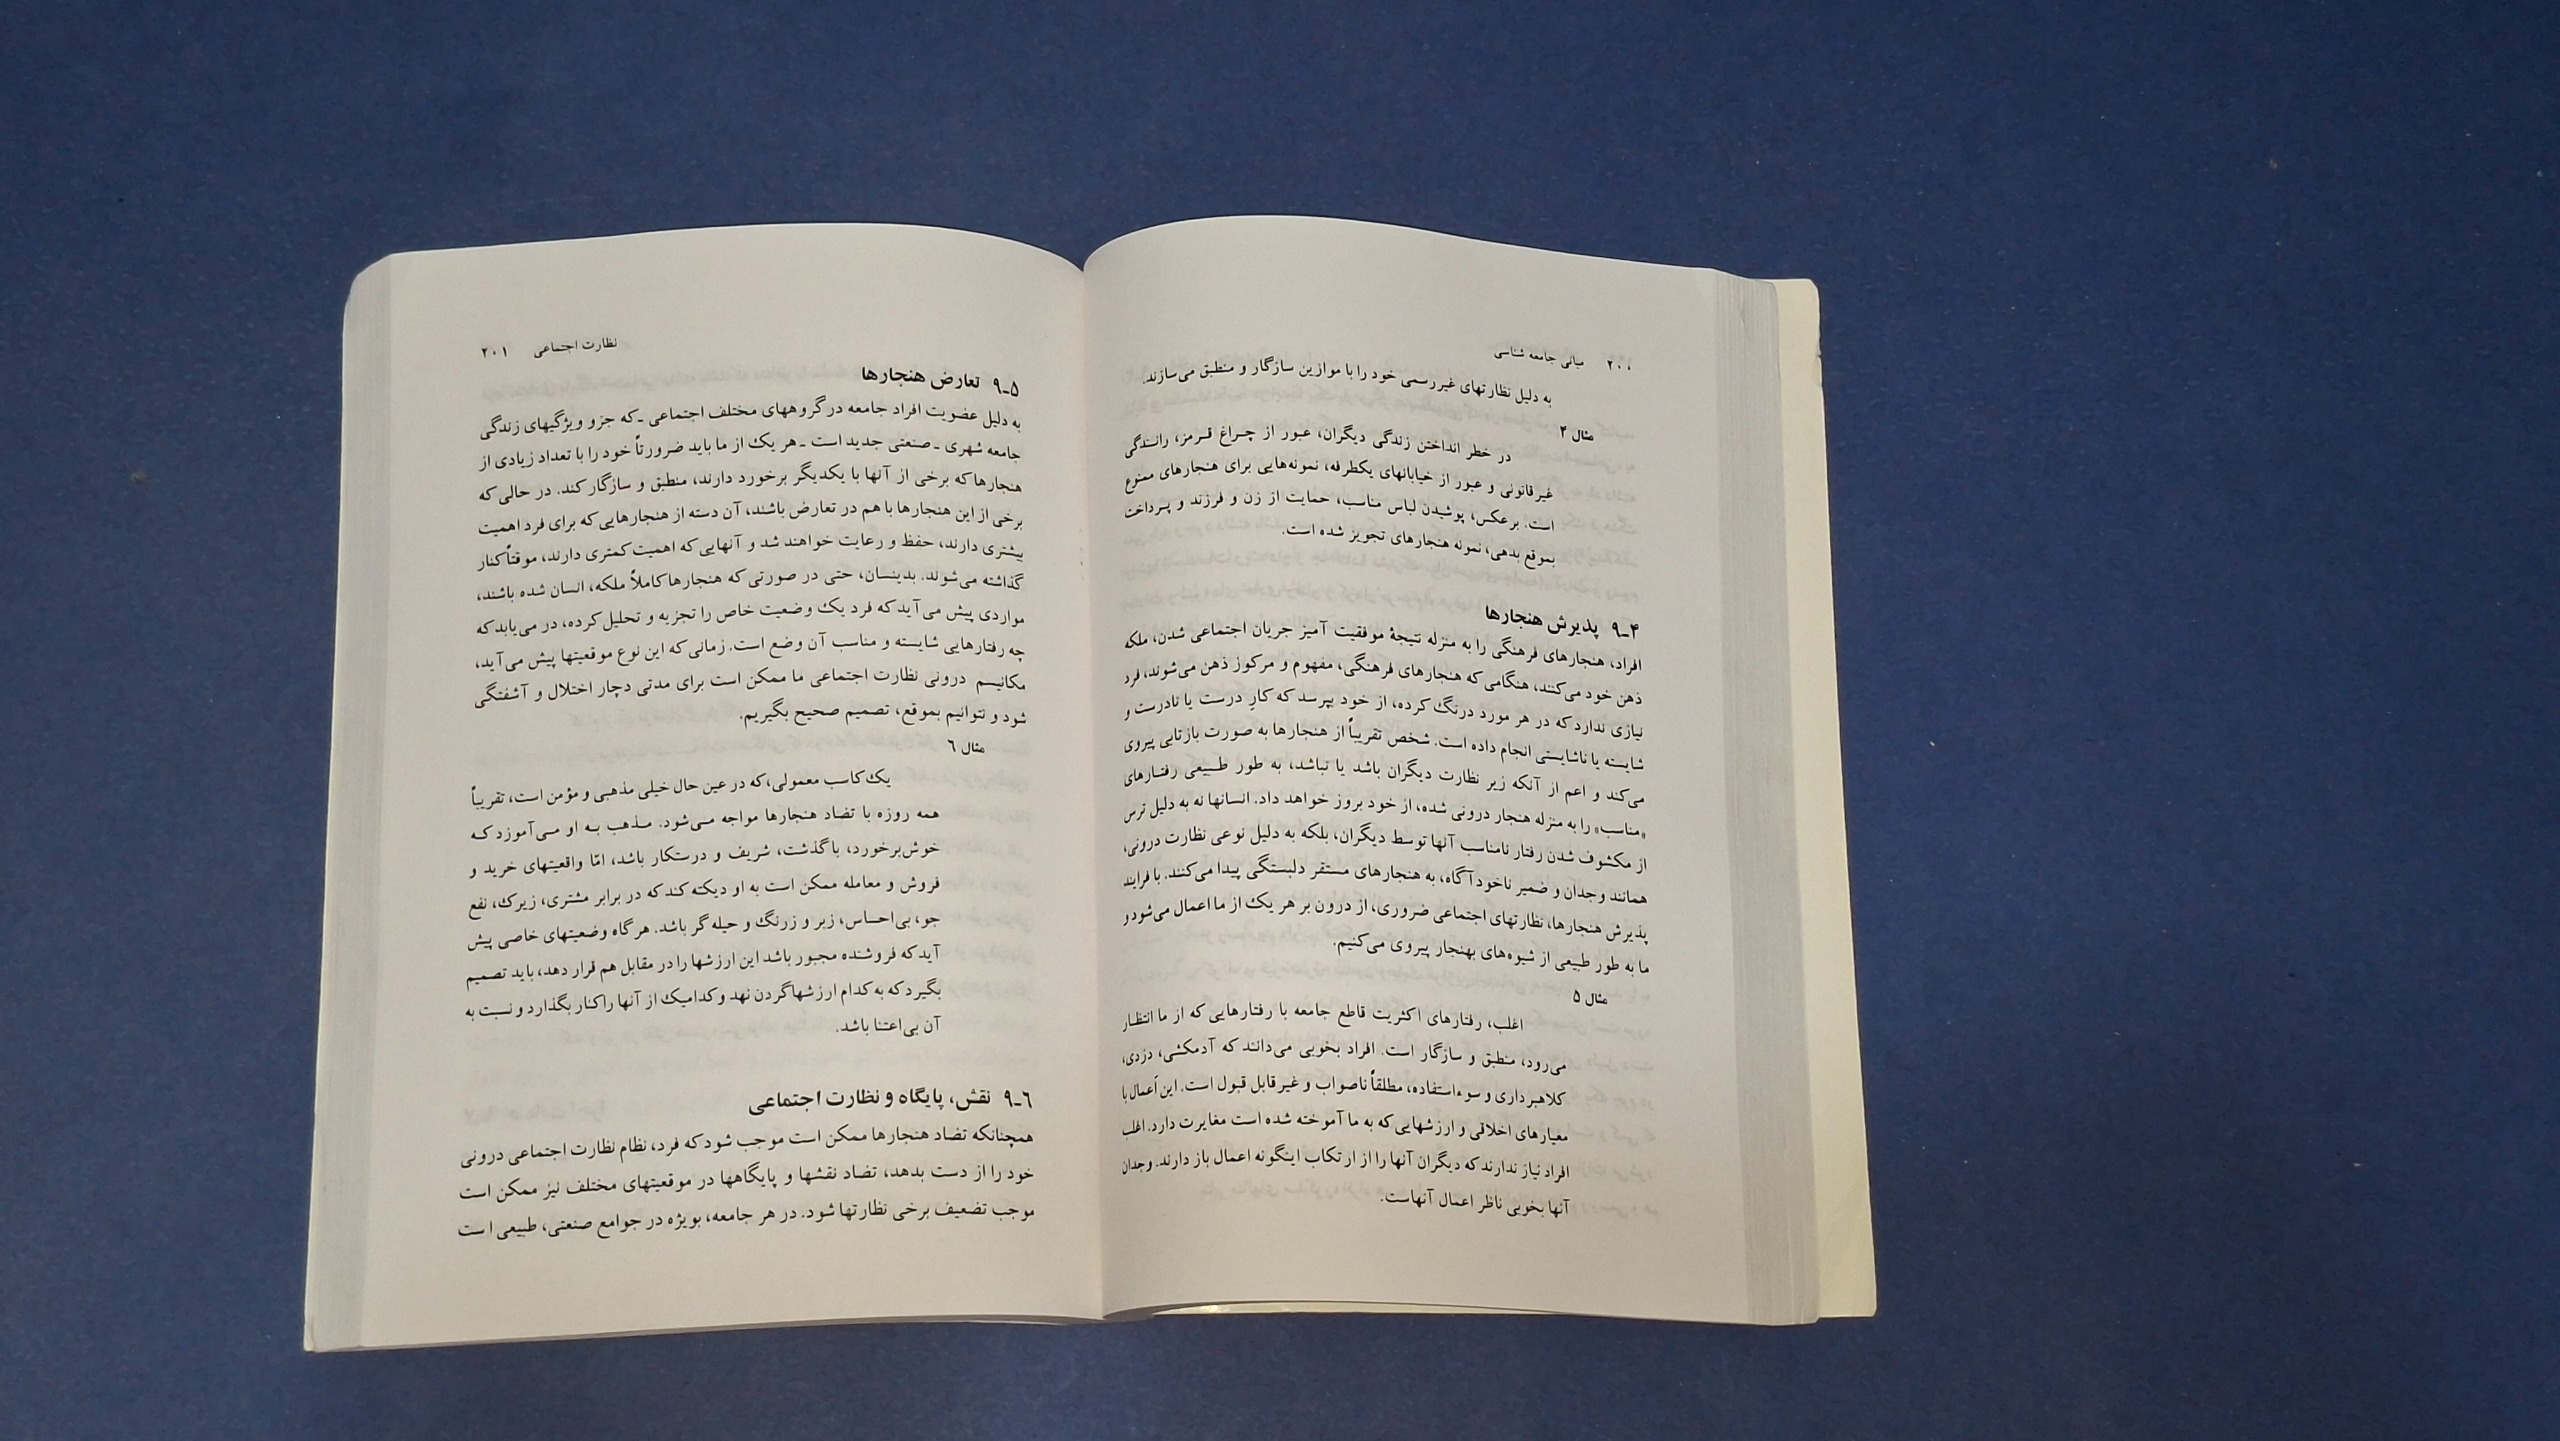 ۲۰۰ مبانی جامعه شناسی
به دلیل نظارتهای غیررسمی خود را با موازین سازگار و منطبق می‌سازند.
مثال ۴
در خطر انداختن زندگی دیگران، عبور از چراغ قرمز، رانندگی
غیرقانونی و عبور از خیابانهای یکطرفه، نمونه‌هایی برای هنجارهای ممنوع
است. برعکس، پوشیدن لباس مناسب، حمایت از زن و فرزند و پرداخت
بموقع بدهی، نمونه هنجارهای تجویز شده است.
۹ـ۴ پذیرش هنجارها
افراد، هنجارهای فرهنگی را به منزله نتیجهٔ موفقیت آمیز جریان اجتماعی شدن، ملکه
ذهن خود می‌کنند، هنگامی که هنجارهای فرهنگی، مفهوم و مرکوز ذهن می‌شوند، فرد
نیازی ندارد که در هر مورد درنگ کرده، از خود بپرسد که کارِ درست یا نادرست و
شایسته یا ناشایستی انجام داده است. شخص تقریباً از هنجارها به صورت بازتابی پیروی
می‌کند و اعم از آنکه زیر نظارت دیگران باشد یا نباشد، به طور طبیعی رفتارهای
«مناسب» را به منزله هنجار درونی شده، از خود بروز خواهد داد. انسانها نه به دلیل ترس
از مکشوف شدن رفتار نامناسب آنها توسط دیگران، بلکه به دلیل نوعی نظارت درونی،
همانند وجدان و ضمیر ناخودآگاه، به هنجارهای مستقر دلبستگی پیدا می‌کنند. با فرایند
پذیرش هنجارها، نظارتهای اجتماعی ضروری، از درون بر هر یک از ما اعمال می‌شود و
ما به طور طبیعی از شیوه‌های بهنجار پیروی می‌کنیم.
مثال ۵
اغلب، رفتارهای اکثریت قاطع جامعه با رفتارهایی که از ما انتظار
می‌رود، منطبق و سازگار است. افراد بخوبی می‌دانند که آدمکشی، دزدی،
کلاهبرداری و سوءاستفاده، مطلقاً ناصواب و غیر قابل قبول است. این اَعمال با
معیارهای اخلاقی و ارزشهایی که به ما آموخته شده است مغایرت دارد. اغلب
افراد نیاز ندارند که دیگران آنها را از ارتکاب اینگونه اعمال باز دارند. وجدان
آنها بخوبی ناظر اعمال آنهاست.
نظارت اجتماعی ۲۰۱
۹ـ۵ تعارض هنجارها
به دلیل عضویت افراد جامعه در گروههای مختلف اجتماعی ـ‌که جزو ویژگیهای زندگی
جامعه شهری ـ صنعتی جدید است ـ هر یک از ما باید ضرورتاً خود را با تعداد زیادی از
هنجارها که برخی از آنها با یکدیگر برخورد دارند، منطبق و سازگار کند. در حالی که
برخی از این هنجارها با هم در تعارض باشند، آن دسته از هنجارهایی که برای فرد اهمیت
بیشتری دارند، حفظ و رعایت خواهند شد و آنهایی که اهمیت کمتری دارند، موقتاً کنار
گذاشته می‌شوند. بدینسان، حتی در صورتی که هنجارها کاملاً ملکه، انسان شده باشند،
مواردی پیش می‌آید که فرد یک وضعیت خاص را تجزیه و تحلیل کرده، در می‌یابد که
چه رفتارهایی شایسته و مناسب آن وضع است. زمانی که این نوع موقعیتها پیش می‌آید،
مکانیسم درونی نظارت اجتماعی ما ممکن است برای مدتی دچار اختلال و آشفتگی
شود و نتوانیم بموقع، تصمیم صحیح بگیریم.
مثال ٦
یک کاسب معمولی، که در عین حال خیلی مذهبی و مؤمن است، تقریباً
همه روزه با تضاد هنجارها مواجه می‌شود. مذهب به او می‌آموزد که
خوش‌برخورد، باگذشت، شریف و درستکار باشد، امّا واقعیتهای خرید و
فروش و معامله ممکن است به او دیکته کند که در برابر مشتری، زیرک، نفع
جو، بی‌احساس، زبر و زرنگ و حیله گر باشد. هرگاه وضعیتهای خاصی پیش
آید که فروشنده مجبور باشد این ارزشها را در مقابل هم قرار دهد، باید تصمیم
بگیرد که به کدام ارزشها گردن نهد و کدامیک از آنها را کنار بگذارد و نسبت به
آن بی‌اعتنا باشد.
۹ـ٦ نقش، پایگاه و نظارت اجتماعی
همچنانکه تضاد هنجارها ممکن است موجب شود که فرد، نظام نظارت اجتماعی درونی
خود را از دست بدهد، تضاد نقشها و پایگاهها در موقعیتهای مختلف نیز ممکن است
موجب تضعیف برخی نظارتها شود. در هر جامعه، بویژه در جوامع صنعتی، طبیعی است